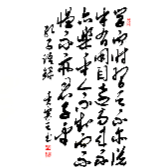 學而時習之不亦說
乎有朋自遠方來不
亦樂乎人不知而不
愠不亦君子乎
孔子語錄